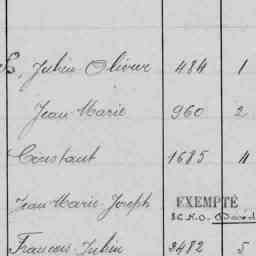 Julien Olivier 484 1
Jean Marie 960 2
Constant 1685 4
Jean Marie Joseph EXEMPTÉ
David
François Julien 3482 5